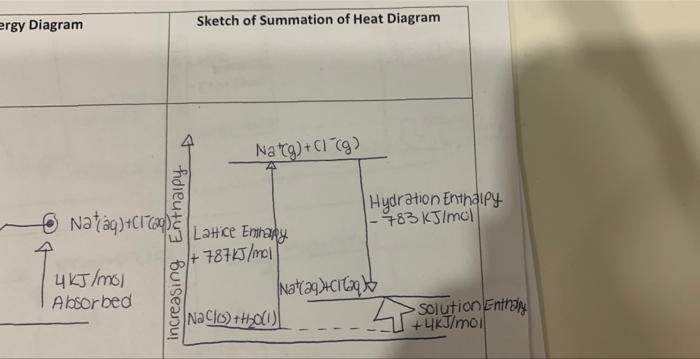 ergy Diagram
Sketch of Summation of Heat Diagram
Na⁺(g)+Cl⁻(g)
Increasing Enthalpy
Hydration Enthalpy
- 783 KJ/mol
Na⁺(aq)+Cl⁻(aq)
Lattice Enthalpy
+ 787KJ/mol
4KJ/mol
Absorbed
Na⁺(aq)+Cl⁻(aq)
NaCl(s)+H₂O(l)
Solution Enthalpy
+4KJ/mol